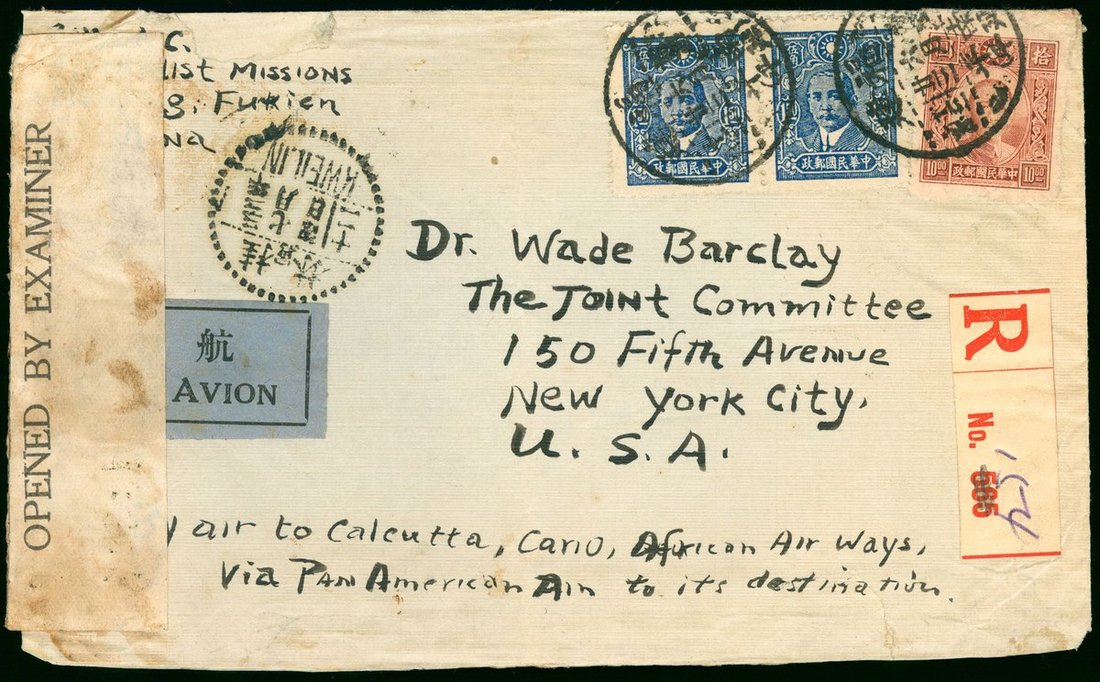 C.
list Missions
g, Fukien
na
中華民國郵政
中華民國郵政
拾
10.00
中華民國郵政
KWEILIN
桂林
OPENED BY EXAMINER
航
AVION
Dr. Wade Barclay
The Joint Committee
150 Fifth Avenue
New York City,
U. S. A.
R
No. 565
154
y air to Calcutta, Cario, African Air Ways,
Via Pan American Air to its destination.